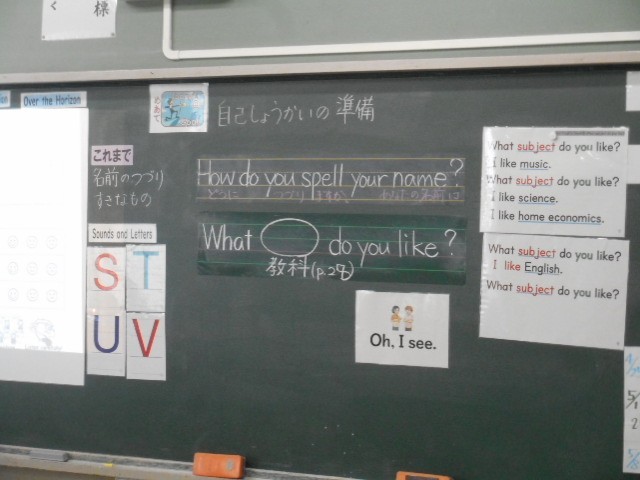 様
Over the Horizon
めあて
自己しょうかいの準備
これまで
名前のつづり
すきなもの
Sounds and Letters
S T
U V
How do you spell your name?
What do you like?
教科(p.28)
Oh, I see.
What subject do you like?
I like music.
What subject do you like?
I like science.
I like home economics.
What subject do you like?
I like English.
What subject do you like?